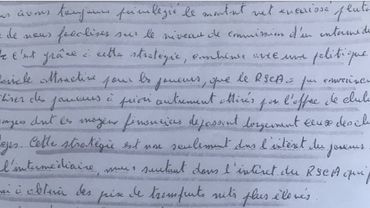 us avons toujours privilégié le montant net encaissé plutôt
de nous focaliser sur le niveau de commission d'un interméd
c'est grâce à cette stratégie, combinée avec une politique
attractive pour les joueurs, que le RSCA a pu convaincre
des joueurs à priori autrement attirés par l'offre de clubs
dont les moyens financiers dépassent largement ceux des clu
belges. Cette stratégie est non seulement dans l'intérêt du joueur
l'intermédiaire, mais surtout dans l'intérêt du RSCA qui p
à obtenir des prix de transferts nets plus élevés.